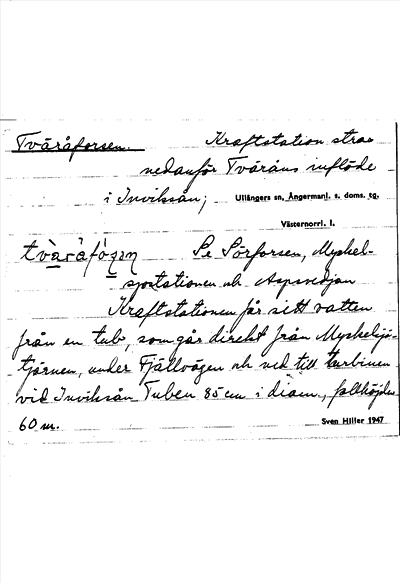 Tvåråforsen. Kraftstation strax
nedanför Tvåråns inflöde
i Inviksån; Ullångers sn, Ångermanl. s. doms. tg.
Västernorrl. l.
Se Sörforsen, Myckel-
sjöstationen och
Kraftstationen får sitt vatten
från en tub, som går direkt från Myckelsjö-
tjärnen, under Fjällvägen och ned till turbinen
vid Inviksån Tuben 85 cm i diam., fallhöjden
60 m. Sven Hiller 1947